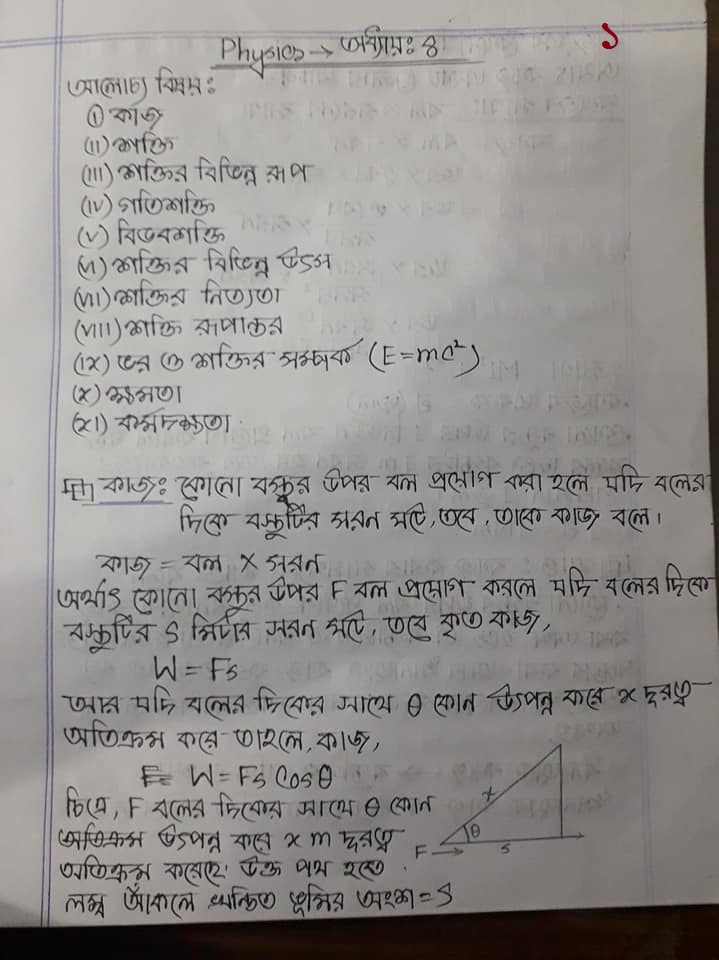 ১
Physics → অধ্যায়ঃ ৪
আলোচ্য বিষয়ঃ
(i) কাজ
(ii) শক্তি
(iii) শক্তির বিভিন্ন রূপ
(iv) গতিশক্তি
(v) বিভবশক্তি
(vi) শক্তির বিভিন্ন উৎস
(vii) শক্তির নিত্যতা
(viii) শক্তি রূপান্তর
(ix) ভর ও শক্তির সম্পর্ক (E=mc²)
(x) ক্ষমতা
(xi) কর্মদক্ষতা
কাজঃ কোনো বস্তুর উপর বল প্রয়োগ করা হলে যদি বলের
দিকে বস্তুটির সরন ঘটে, তবে, তাকে কাজ বলে।
কাজ = বল × সরন
অর্থাৎ কোনো বস্তুর উপর F বল প্রয়োগ করলে যদি বলের দিকে
বস্তুটির S মিটার সরন ঘটে, তবে কৃত কাজ,
W = Fs
আর যদি বলের দিকের সাথে θ কোন উৎপন্ন করে x দূরত্ব
অতিক্রম করে তাহলে, কাজ,
W = Fs Cosθ
চিত্রে, F বলের দিকের সাথে θ কোন
অতিক্রম উৎপন্ন করে x m দূরত্ব
অতিক্রম করেছে। উক্ত পথ হতে
লম্ব আঁকলে খন্ডিত ভূমির অংশ = S
x
θ
F →
s